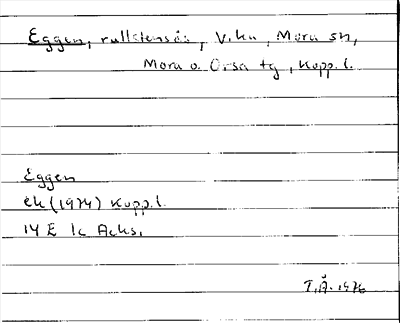 Eggen, rullstensås, Vika, Mora sn,
Mora o. Orsa tg, Kopp. l.
Eggen
ek (1974) Kopp. l.
14 E 1c
T.Å. 1976